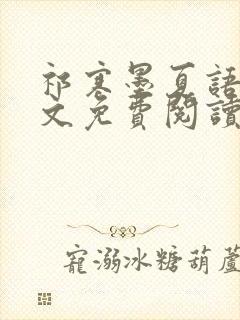 祁寒墨夏語
文免費閱讀
寵溺冰糖葫蘆